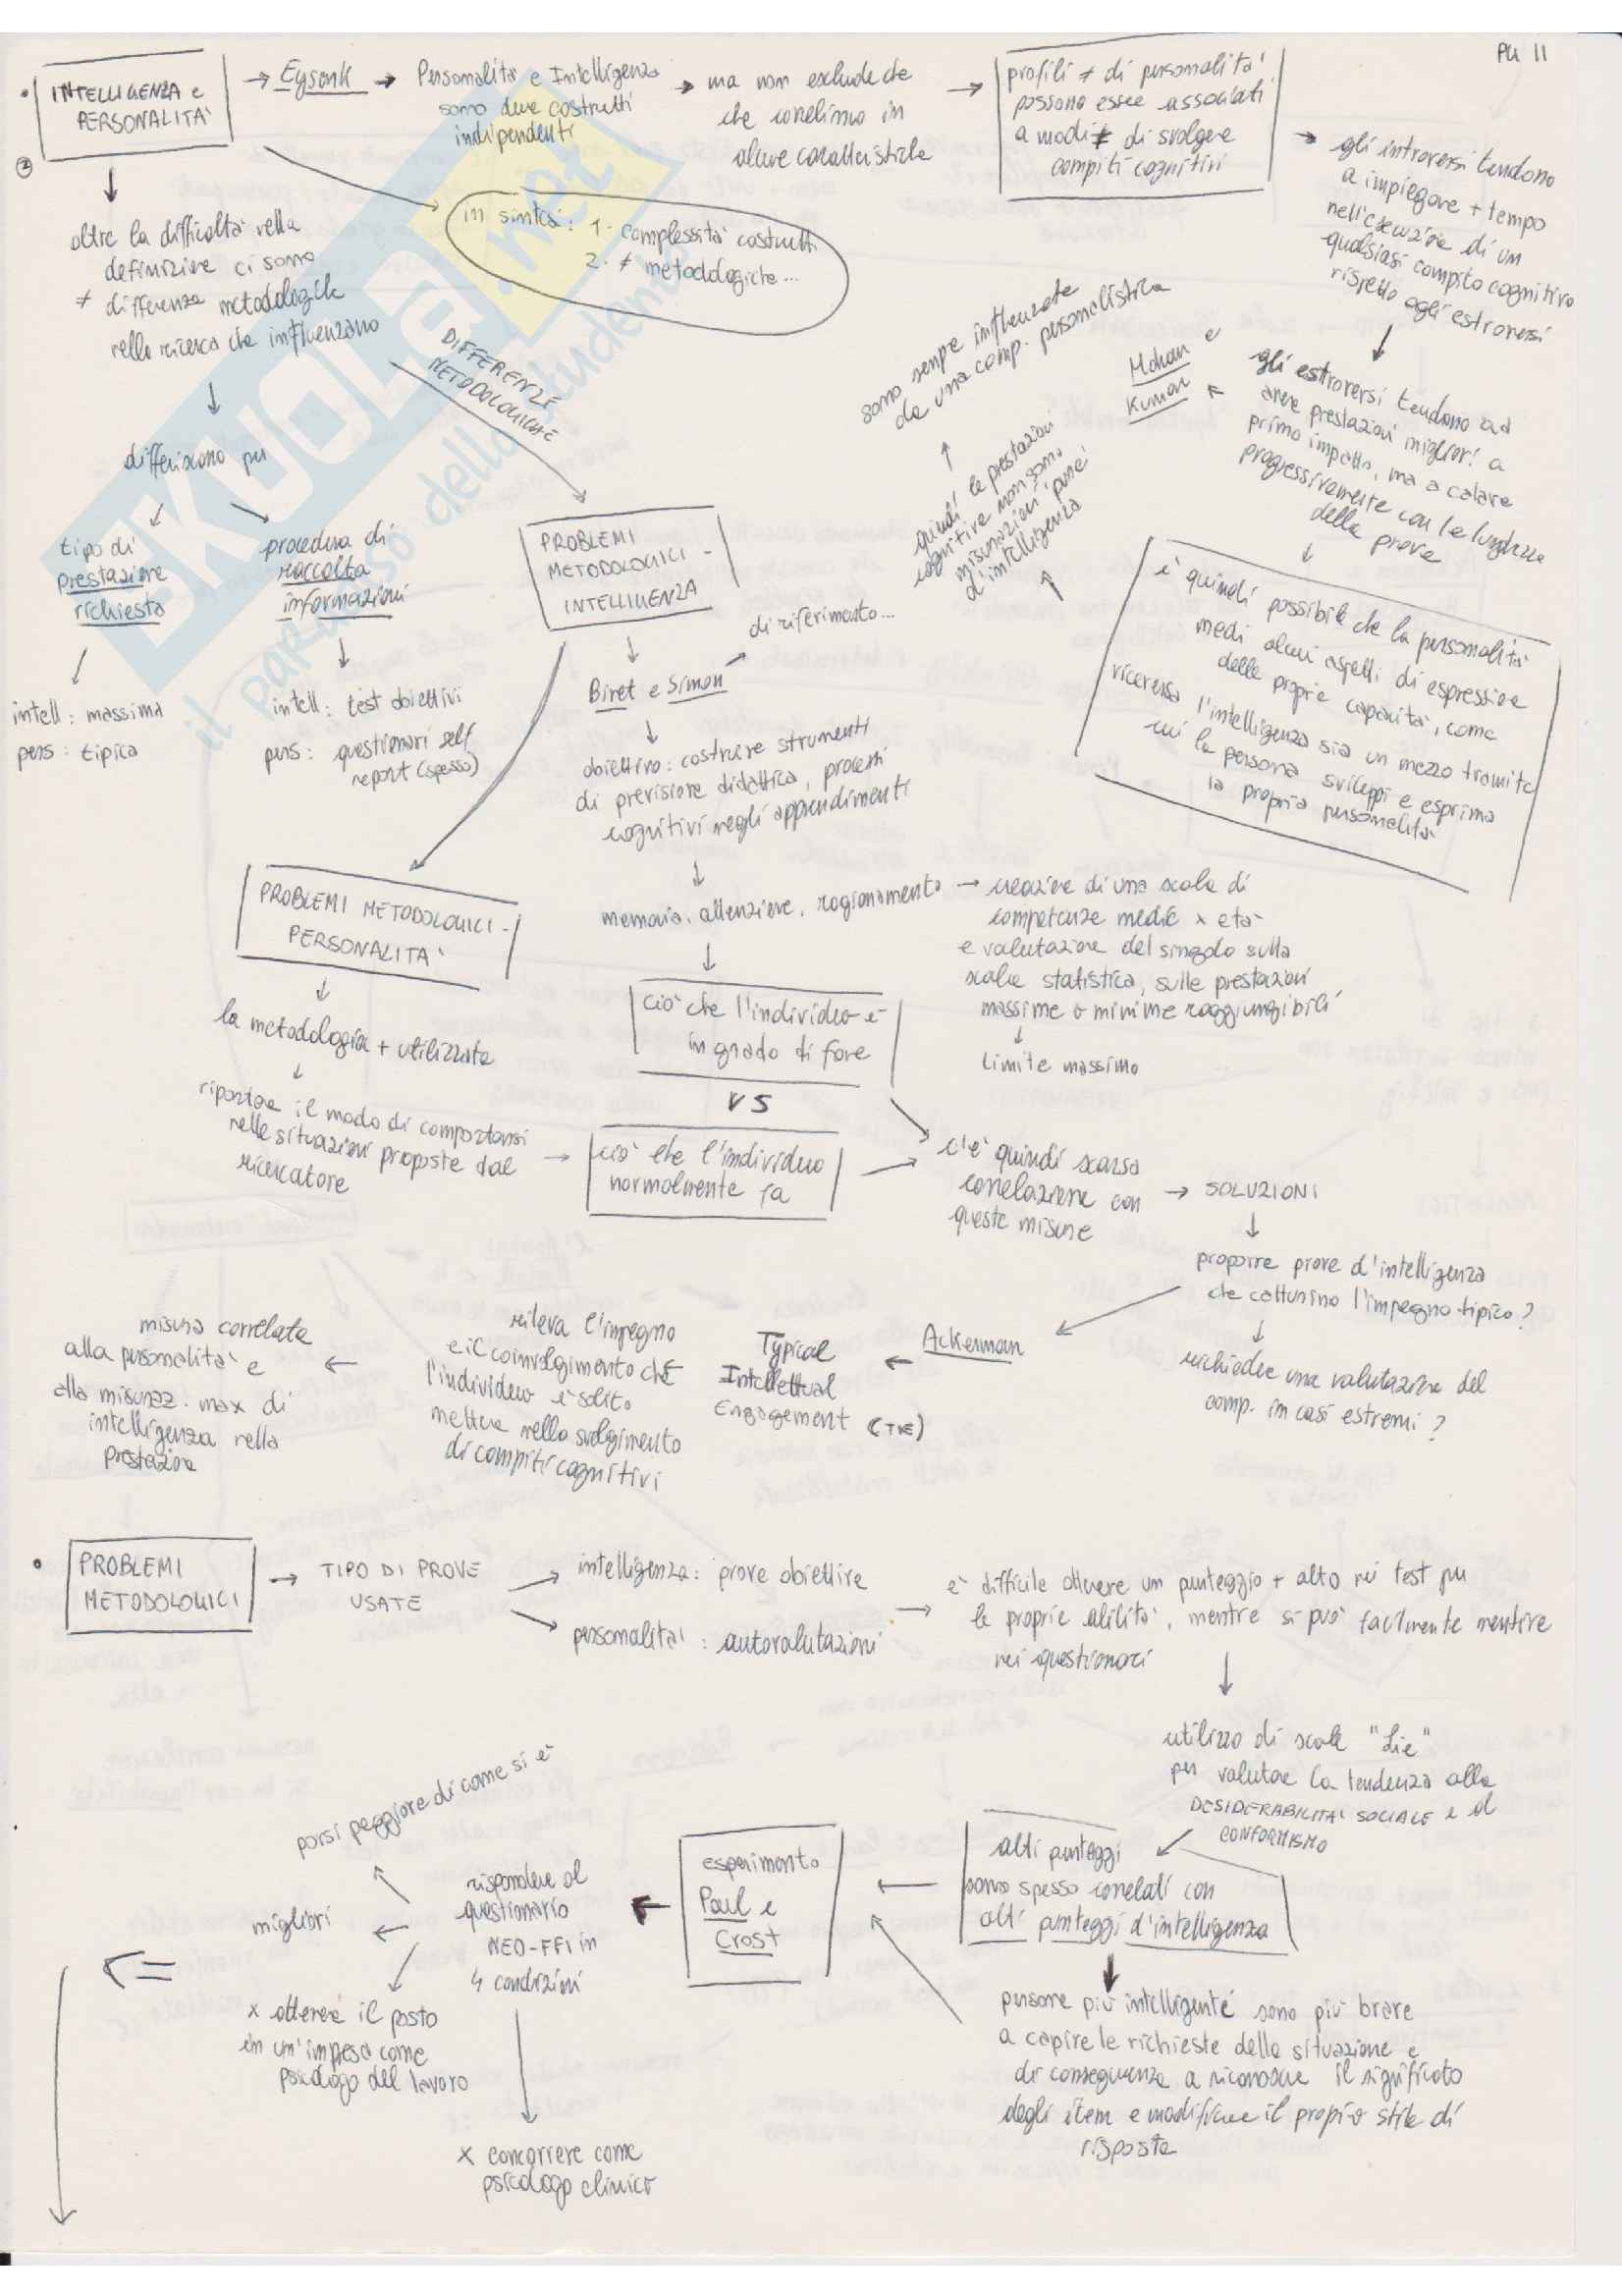 PG 11
INTELLIGENZA e
PERSONALITA'
→ Eysenk →
Personalità e Intelligenza
sono due costrutti
indipendenti
→ ma non esclude che
che correlino in
alcune caratteristiche
→ profili ≠ di personalità
possono essere associati
a modi ≠ di svolgere
compiti cognitivi
→ gli introversi tendono
a impiegare + tempo
nell'esecuzione di un
qualsiasi compito cognitivo
rispetto agli estroversi
gli estroversi tendono ad
avere prestazioni migliori a
primo impatto, ma a calare
progressivamente con la lunghezza
della prova
Mohan e
Kumar
è quindi possibile che la personalità
medi alcuni aspetti di espressione
delle proprie capacità, come
viceversa l'intelligenza sia un mezzo tramite
cui la persona sviluppi e esprima
la propria personalità
quindi le prestazioni
cognitive non sono
misurazioni "pure"
d'intelligenza
sono sempre influenzate
da una comp. personalistica
②
oltre la difficoltà nella
definizione ci sono
≠ differenze metodologiche
nella ricerca che influenzano
in sintesi: 1. complessità costrutti
2. ≠ metodologiche...
DIFFERENZE
METODOLOGICHE
differiscono per
tipo di
prestazione
richiesta
intell: massima
pers: tipica
procedura di
raccolta
informazioni
intell: test obiettivi
pers: questionari self
report (spesso)
PROBLEMI
METODOLOGICI -
INTELLIGENZA
Binet e Simon
di riferimento...
obiettivo: costruire strumenti
di previsione didattica, processi
cognitivi negli apprendimenti
memoria, attenzione, ragionamento →
creazione di una scala di
competenze medie x età
e valutazione del singolo sulla
scala statistica, sulle prestazioni
massime o minime raggiungibili
limite massimo
PROBLEMI METODOLOGICI -
PERSONALITA'
la metodologia + utilizzata
riportare il modo di comportarsi
nelle situazioni proposte dal
ricercatore
ciò che l'individuo è
in grado di fare
VS
ciò che l'individuo
normalmente fa
c'è quindi scarsa
correlazione con
queste misure
→ SOLUZIONI
proporre prove d'intelligenza
che catturino l'impegno tipico?
richiedere una valutazione del
comp. in casi estremi?
Ackerman
Typical
Intellettual
Engagement (TIE)
rileva l'impegno
e il coinvolgimento che
l'individuo è solito
mettere nello svolgimento
di compiti cognitivi
misura correlata
alla personalità e
alla misuraz. max di
intelligenza nella
prestazione
PROBLEMI
METODOLOGICI
→ TIPO DI PROVE
USATE
intelligenza: prove obiettive
personalità: autovalutazioni
→ è difficile ottenere un punteggio + alto nei test per
le proprie abilità, mentre si può facilmente mentire
nei questionari
utilizzo di scale "Lie"
per valutare la tendenza alla
DESIDERABILITA' SOCIALE e al
CONFORMISMO
alti punteggi
sono spesso correlati con
alti punteggi d'intelligenza
persone più intelligenti sono più brave
a capire le richieste della situazione e
di conseguenza a riconoscere il significato
degli item e modificare il proprio stile di
risposta
esperimento
Paul e
Crost
rispondere al
questionario
NEO-FFI in
4 condizioni
porsi peggiore di come si è
migliori
x ottenere il posto
in un'impresa come
psicologo del lavoro
x concorrere come
psicologo clinico
SKUOLA.net
il paradiso dello studente